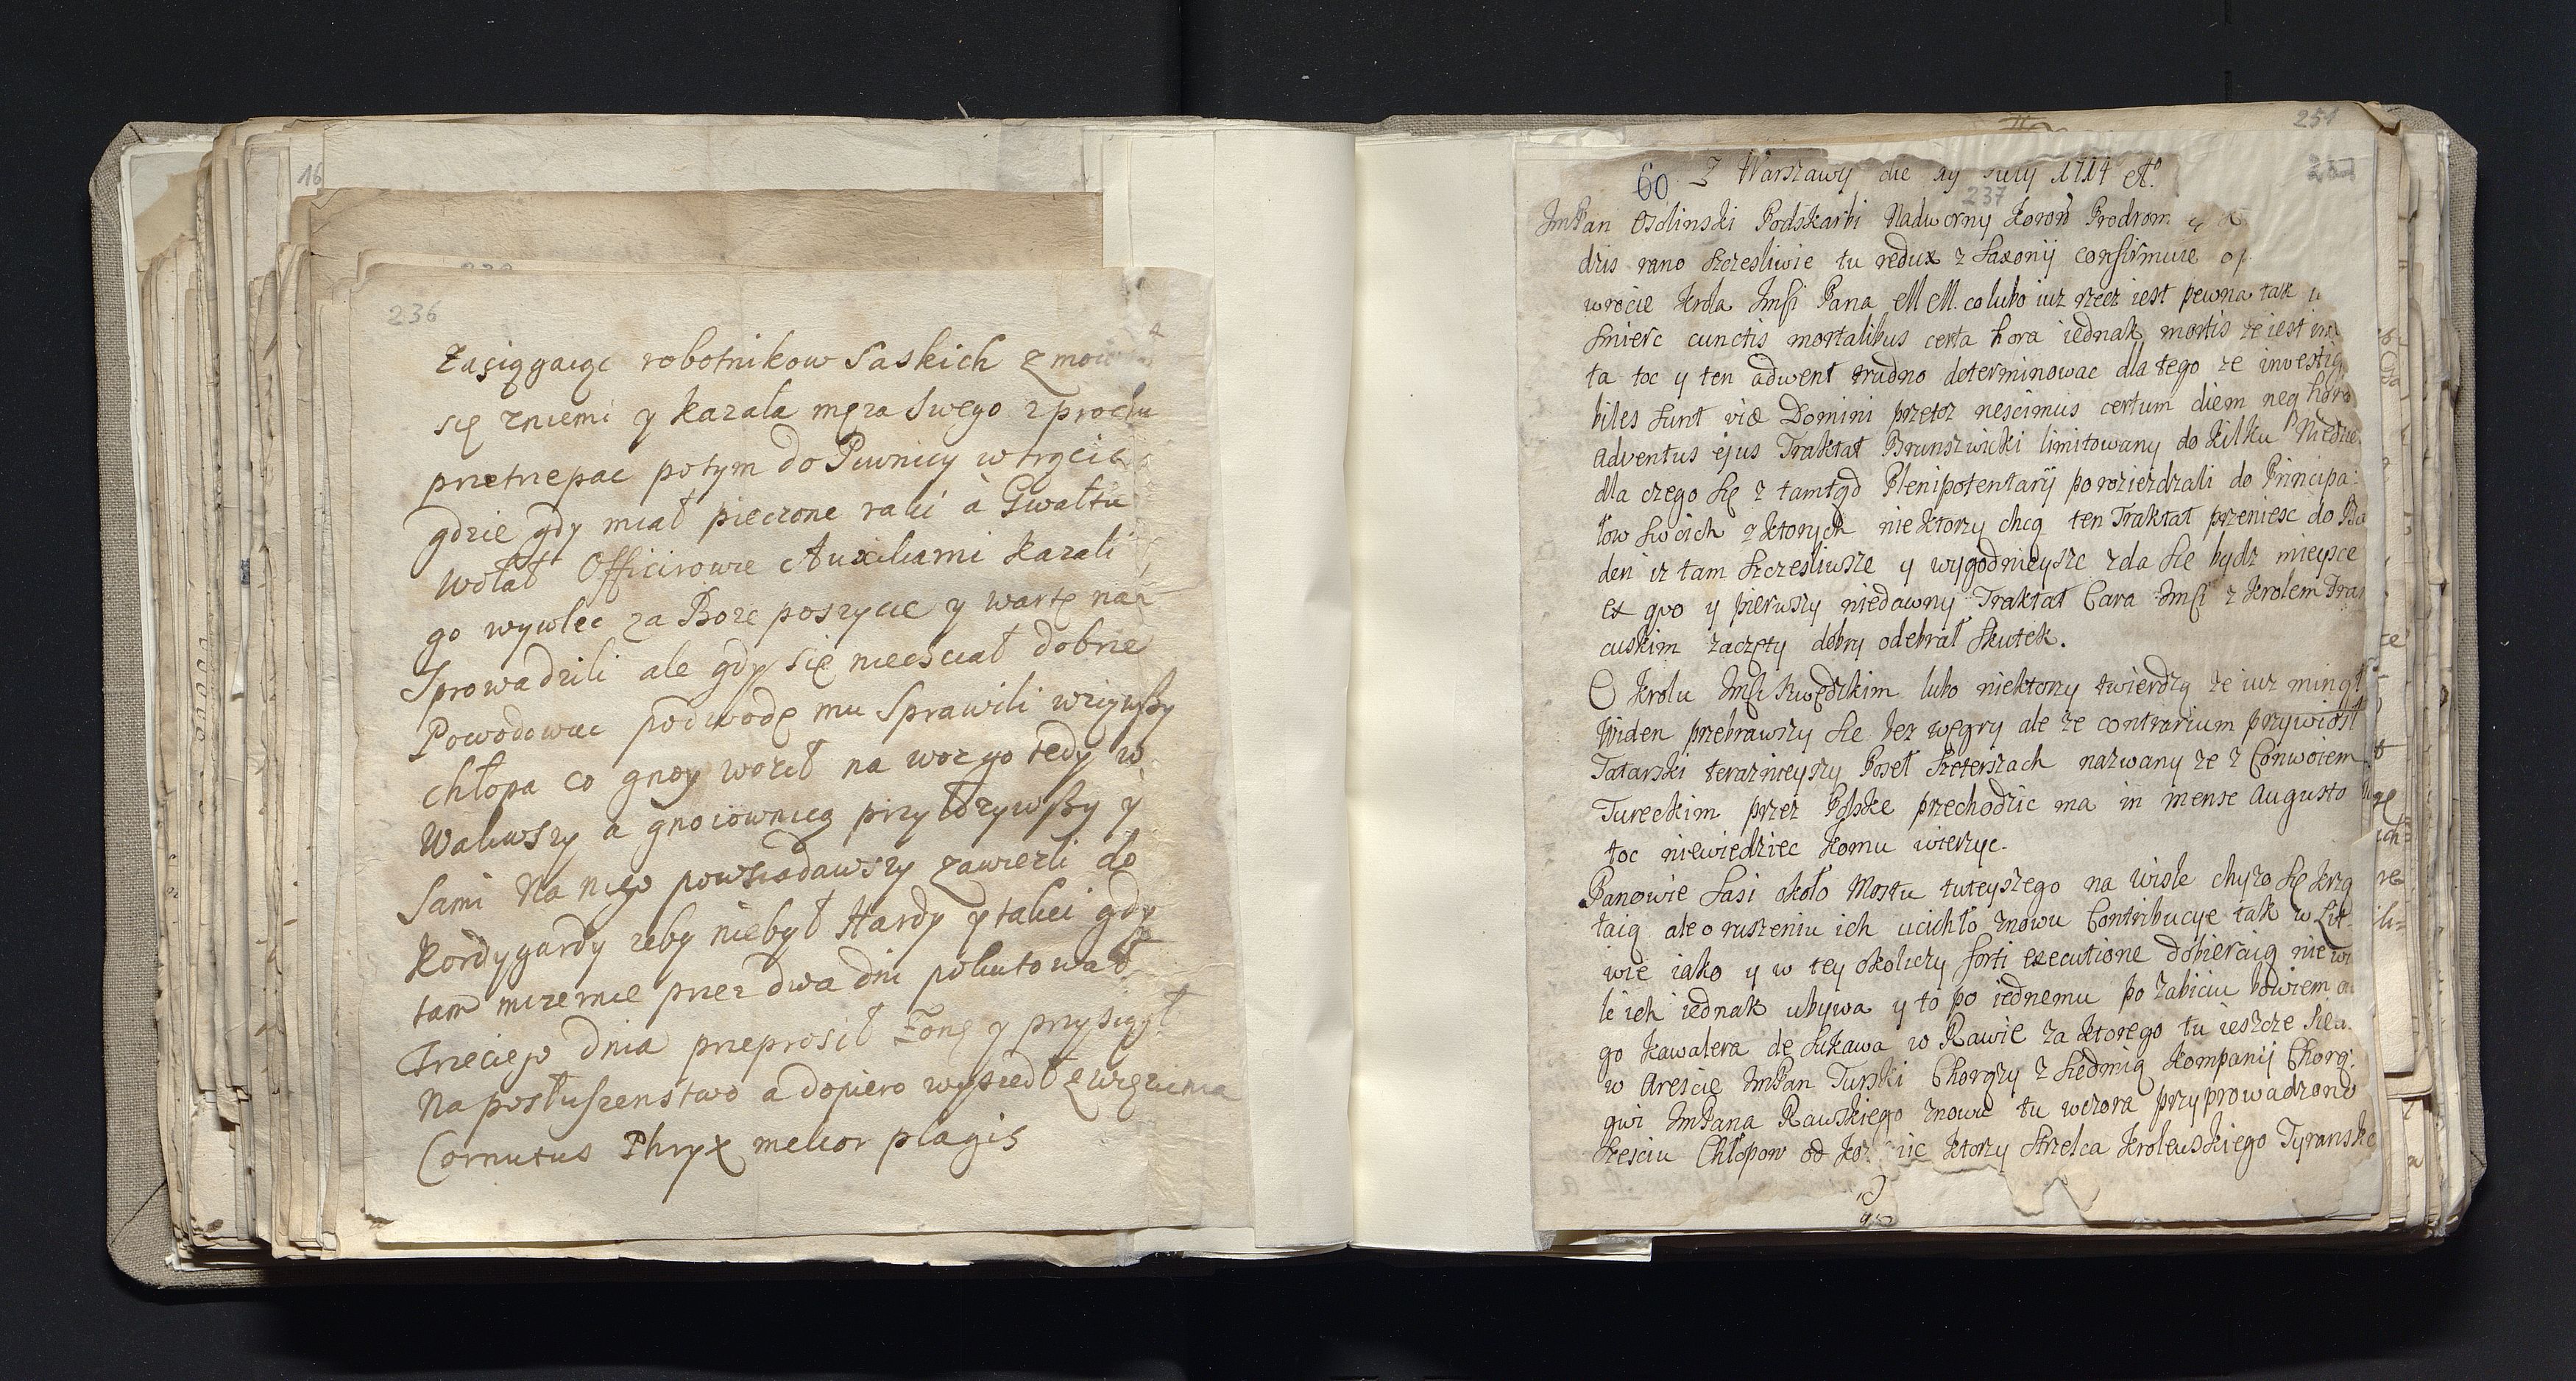 16
236
Zasiągaiąc robotnikow Saskich
się zniemi y kazała męza swego z prochu
przetrzepac potym do Piwnicy wtrącic
gdzie gdy miał pieczone raki à Gwałtu
wołał Officirowie Auxiliarni kazali
go wywlec za Boze poszycie y wartę nan
sprowadzili ale gdy się niechciał dobrze
Powodowac podwodę mu sprawili wziąwszy
chłopa co gnoy woził na woz go tedy w
Waliwszy a gnoiownicą przyłozywszy y
Sami na niego powsiadawszy zawiezli do
Kordygardy zeby niebył Hardy y takci gdy
tam mizernie przez dwa dni pokutował
Trzeciego dnia przeprosił Zonę y przysiągł
Na posłuszenstwo a dopiero wyszedł z więzienia
Cornutus Phryx melior plagis
251
237
60 Z Warszawy die 19 July 1714 Aº
237
ImPan Osolinski Podskarbi Nadworny Koron Prodrom
dzis rano szczesliwie tu redux z Saxonij confirmuie
wrocie Krola Imsci Pana M M. co lubo iuz rzecz iest pewna tak
smierc cunctis mortalibus certa hora iednak mortis ze iest
ta toc y ten adwent trudno determinowac dla tego ze investiga
biles sunt viæ Domini przetoz nescimus certum diem neq horam
adventus ejus Traktat Brunszwicki limitowany do kilku Niedziel
dla czego się z tamtąd Plenipotentarij porozieżdzali do Principa:
łow swoich z ktorych niektorzy chcą ten Traktat przeniesc do Ba
den iz tam szczesliwsze y wygodnieysze zda sie bydz mieysce
ex quo y pierwszy niedawny Traktat Cara Imsci z Krolem Fran
cuskim zaczęty dobry odebrał skutek.
O Krolu Imsci Szwedzkim lubo niektorzy twierdzą ze iuz minął
Widen przebrawszy sie bez węgry ale ze contrarium przywiozł
Tatarski teraznieyszy Poseł Szeterszach nazwany ze z Conwoiem
Tureckim przez Polskę przechodzic ma in mense Augusto
toc niewiedziec komu wierzyc.
Panowie Sasi około Mostu tuteyszego na wisle chyzo się krzą
taią ale o ruszeniu ich ucichło znowu Contribucye tak w Lit
wie iako y w tey okoliczy forti executione dobieraią nie wi
le ich iednak ubywa y to po iednemu po zabiciu bowiem
go kawalera de Sukawa w Rawie za ktorego tu ieszcze
w areście ImPan Turski Chorąży z siedmią kompanij Chorą:
gwi ImPana Rawskiego znowu tu wczora przyprowadzono
szesciu Chłopow od ktorzy strzelca krolewskiego Tyransko